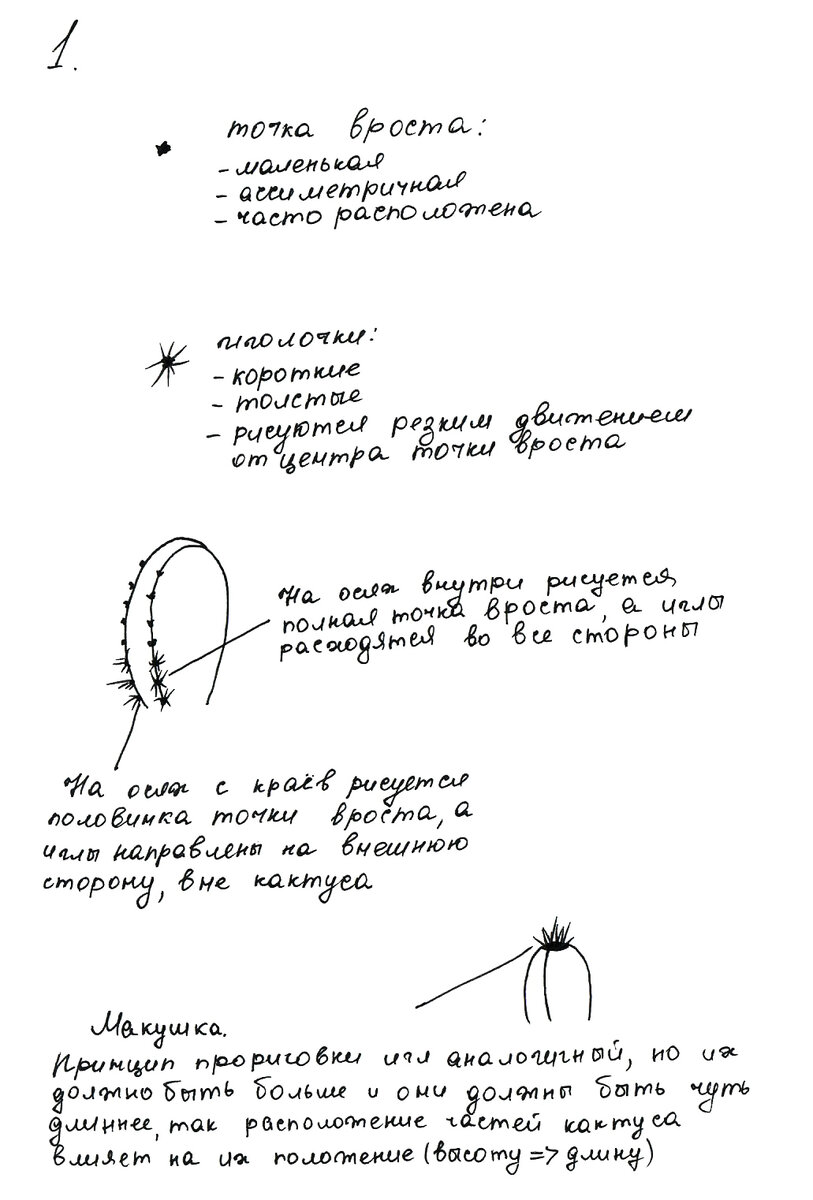 1.
точка вроста:
- маленькая
- ассиметричная
- часто расположена
иголочки:
- короткие
- толстые
- рисуются резким движением
от центра точки вроста
На осях внутри рисуется
полная точка вроста, а иглы
расходятся во все стороны
На осях с краёв рисуется
половинка точки вроста, а
иглы направлены на внешнюю
сторону, вне кактуса
Макушка.
Принцип прорисовки игл аналогичный, но их
должно быть больше и они должны быть чуть
длиннее, так расположение частей кактуса
влияет на их положение (высоту => длину)